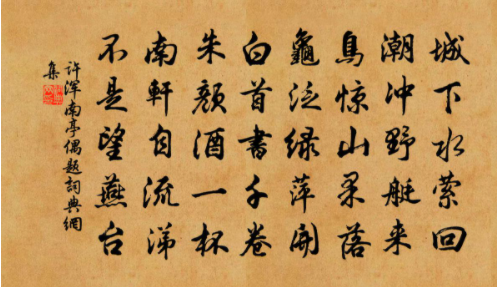 城下水萦回
潮冲野艇来
鳥惊山果落
龜泛绿萍開
白首書千卷
朱颜酒一杯
南軒自流涕
不是望燕台
許渾南亭偶題詞典網
集